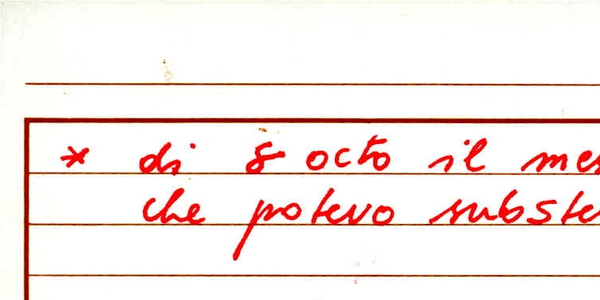 * di 8 octo il mes
che potevo subste